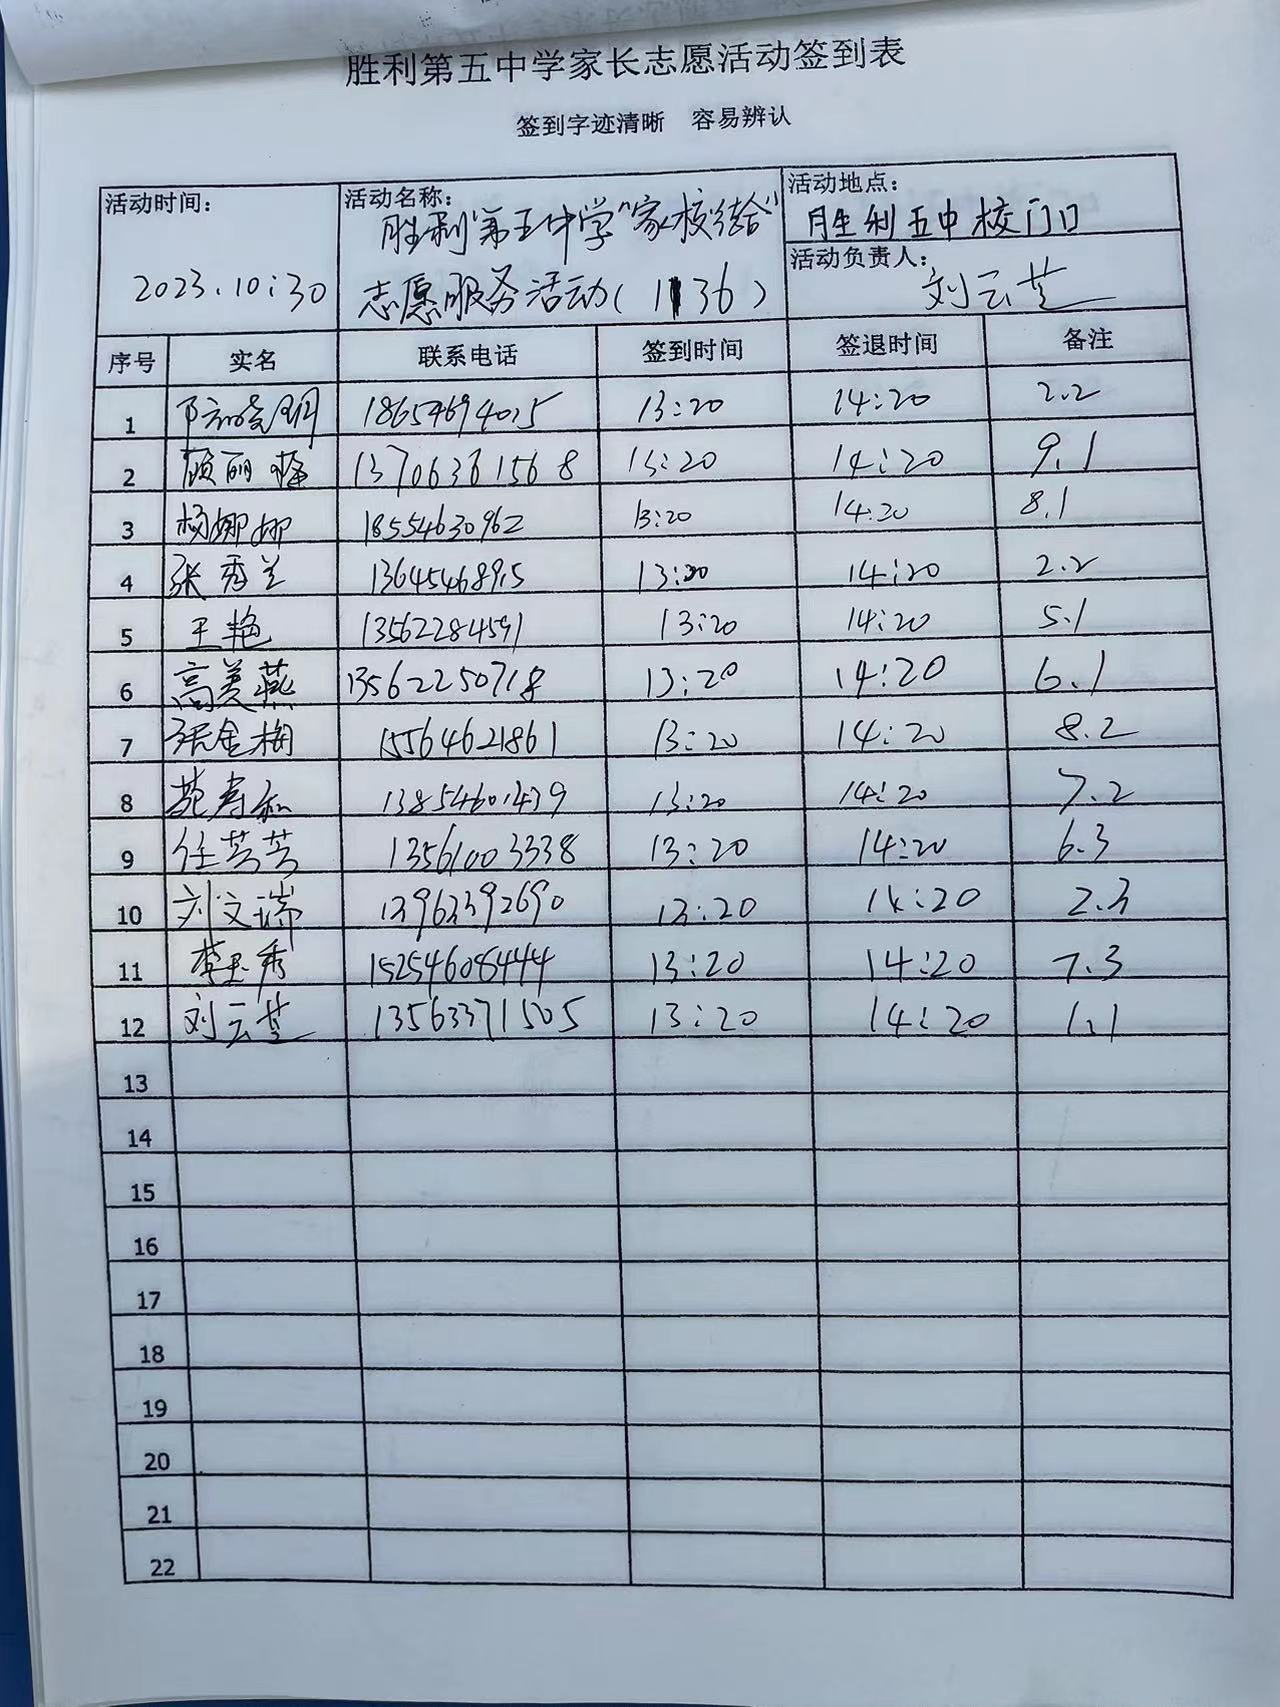 胜利第五中学家长志愿活动签到表
签到字迹清晰 容易辨认
活动时间: 2023.10:30
活动名称: 胜利第五中学"家校结合"
志愿服务活动(1136)
活动地点: 胜利五中校门口
活动负责人: 刘云芝
序号 实名 联系电话 签到时间 签退时间 备注
1 18654694015 13:20 14:20 2.2
2 顾丽 13706361568 13:20 14:20 9.1
3 杨娜娜 18554630962 13:20 14:20 8.1
4 张秀兰 13645468915 13:20 14:20 2.2
5 王艳 13562284591 13:20 14:20 5.1
6 高美燕 13562250718 13:20 14:20 6.1
7 张金梅 15564621861 13:20 14:20 8.2
8 13854601439 13:20 14:20 7.2
9 任芳芳 13561003338 13:20 14:20 6.3
10 刘文瑞 13963392690 13:20 14:20 2.3
11 李玉秀 15254608444 13:20 14:20 7.3
12 刘云芝 13563371505 13:20 14:20 1.1
13
14
15
16
17
18
19
20
21
22